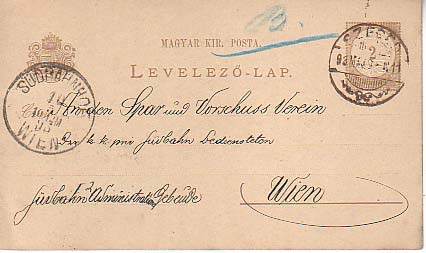 MAGYAR KIR. POSTA.
LEVELEZŐ-LAP.
SÜDBAHNHOF
WIEN
An den Spar und Vorschuss Verein
der k.k. priv Südbahn Bediensteten
Südbahn Administration Gebäude
Wien